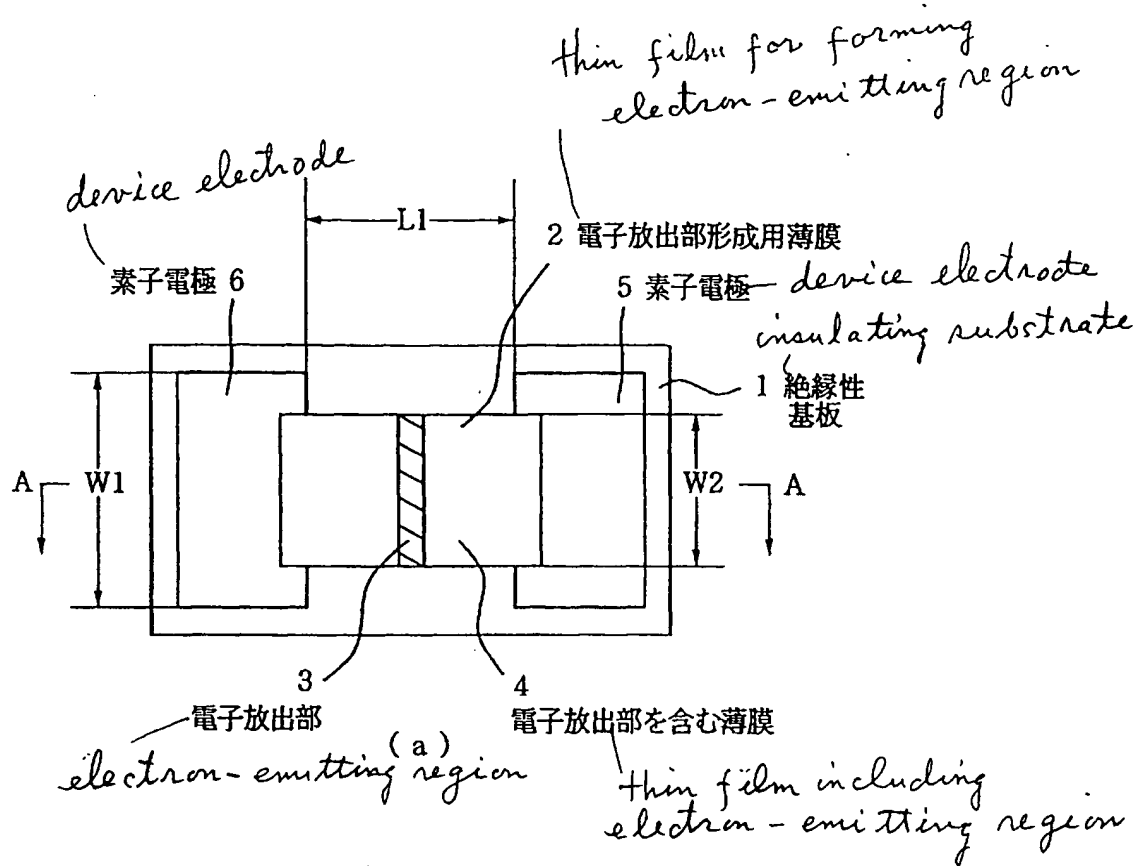 thin film for forming
electron-emitting region
device electrode
L1
2 電子放出部形成用薄膜
素子電極 6
5 素子電極
device electrode
insulating substrate
1 絶縁性
基板
A
W1
W2
A
3
電子放出部
4
電子放出部を含む薄膜
(a)
electron-emitting region
thin film including
electron-emitting region